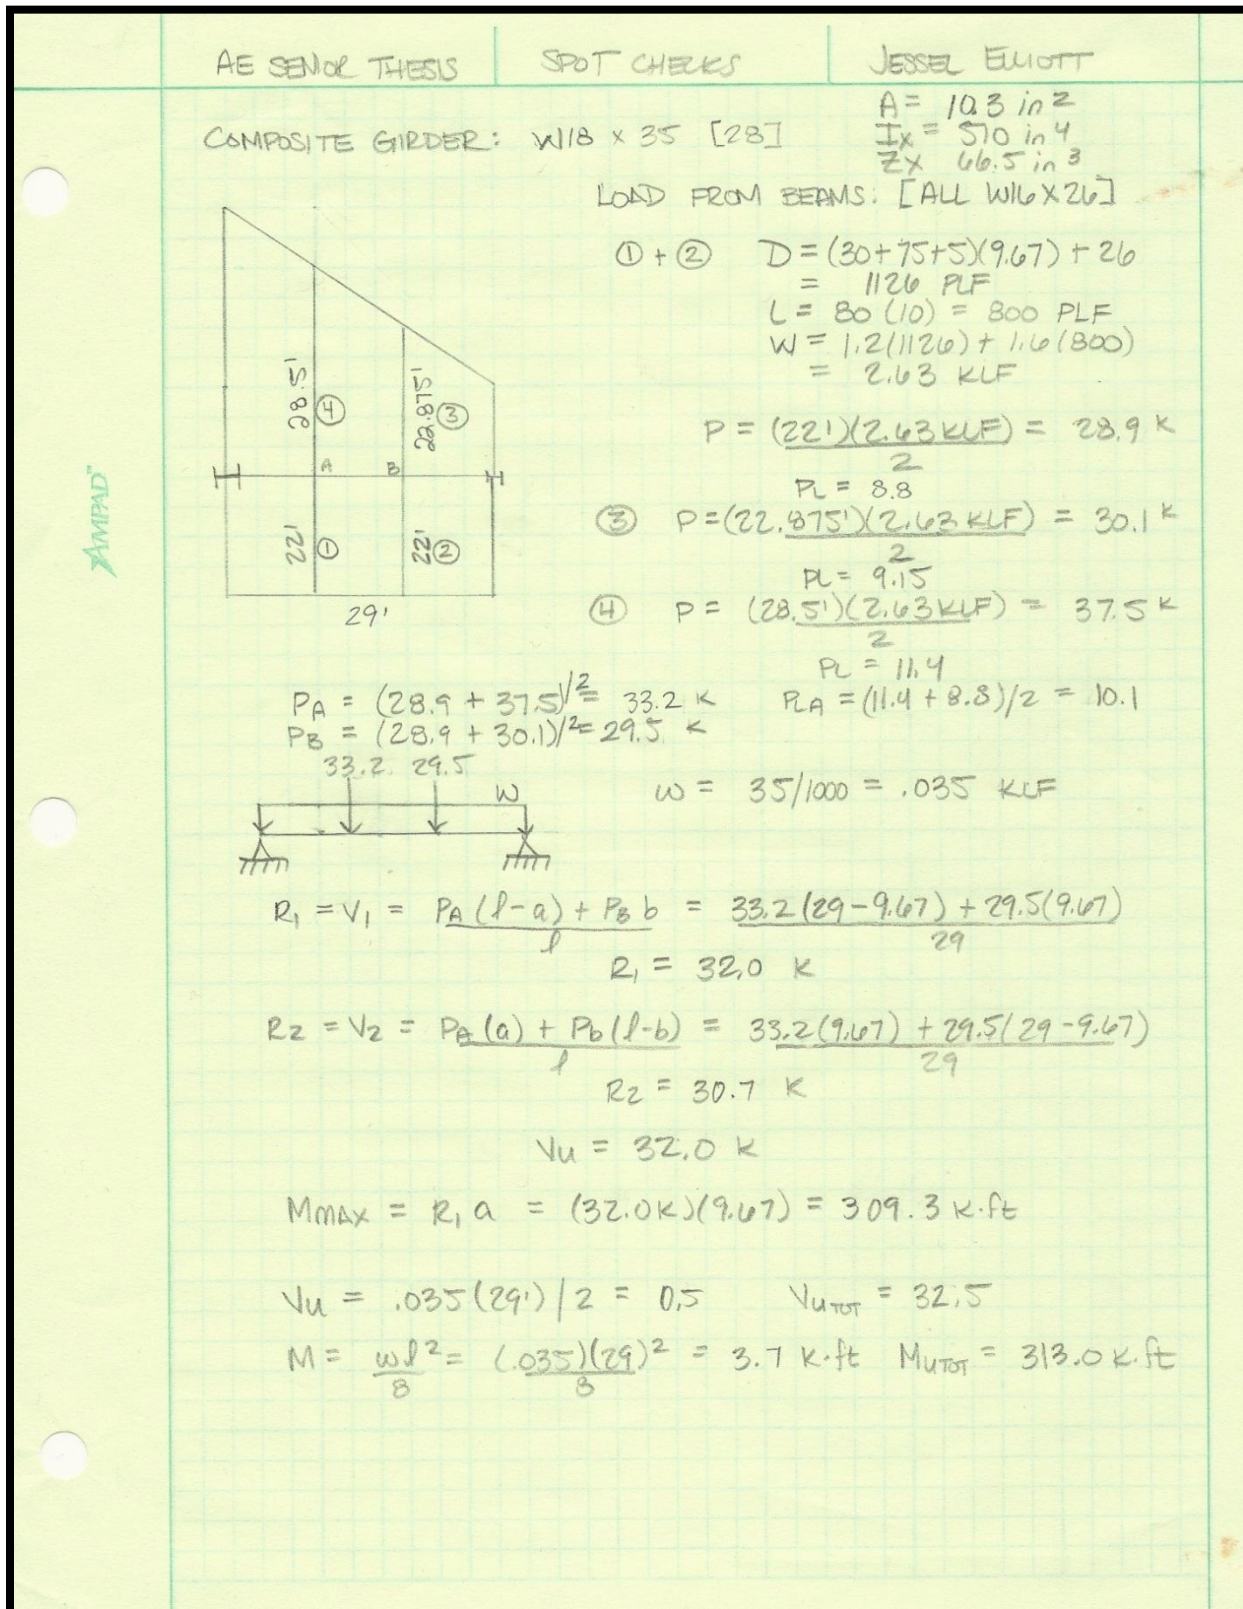 AE SENIOR THESIS
SPOT CHECKS
JESSEL ELLIOTT
COMPOSITE GIRDER: W18 x 35 [28]
A = 10.3 in2
Ix = 510 in4
Zx 66.5 in3
LOAD FROM BEAMS: [ALL W16X26]
① + ② D = (30+75+5)(9.67) + 26
= 1126 PLF
L = 80 (10) = 800 PLF
W = 1.2(1126) + 1.6(800)
= 2.63 KLF
P = (22')(2.63 KLF)/2 = 28.9 K
PL = 8.8
③ P = (22.875')(2.63 KLF)/2 = 30.1 K
PL = 9.15
④ P = (28.5')(2.63 KLF)/2 = 37.5 K
PL = 11.4
28.5' ④
22.875' ③
A B
22' ①
22' ②
29'
AMPAD™
PA = (28.9 + 37.5)/2 = 33.2 K
PLA = (11.4 + 8.8)/2 = 10.1
PB = (28.9 + 30.1)/2 = 29.5 K
33.2 29.5
W
w = 35/1000 = .035 KLF
R1 = V1 = PA (l-a) + PB b / l = 33.2 (29-9.67) + 29.5(9.67) / 29
R1 = 32.0 K
R2 = V2 = PA (a) + Pb (l-b) / l = 33.2(9.67) + 29.5(29-9.67) / 29
R2 = 30.7 K
Vu = 32.0 K
MMAX = R1 a = (32.0K)(9.67) = 309.3 K·ft
Vu = .035(29')/2 = 0.5 VuTOT = 32.5
M = wl2/8 = (.035)(29)2/8 = 3.7 K·ft MuTOT = 313.0 K·ft